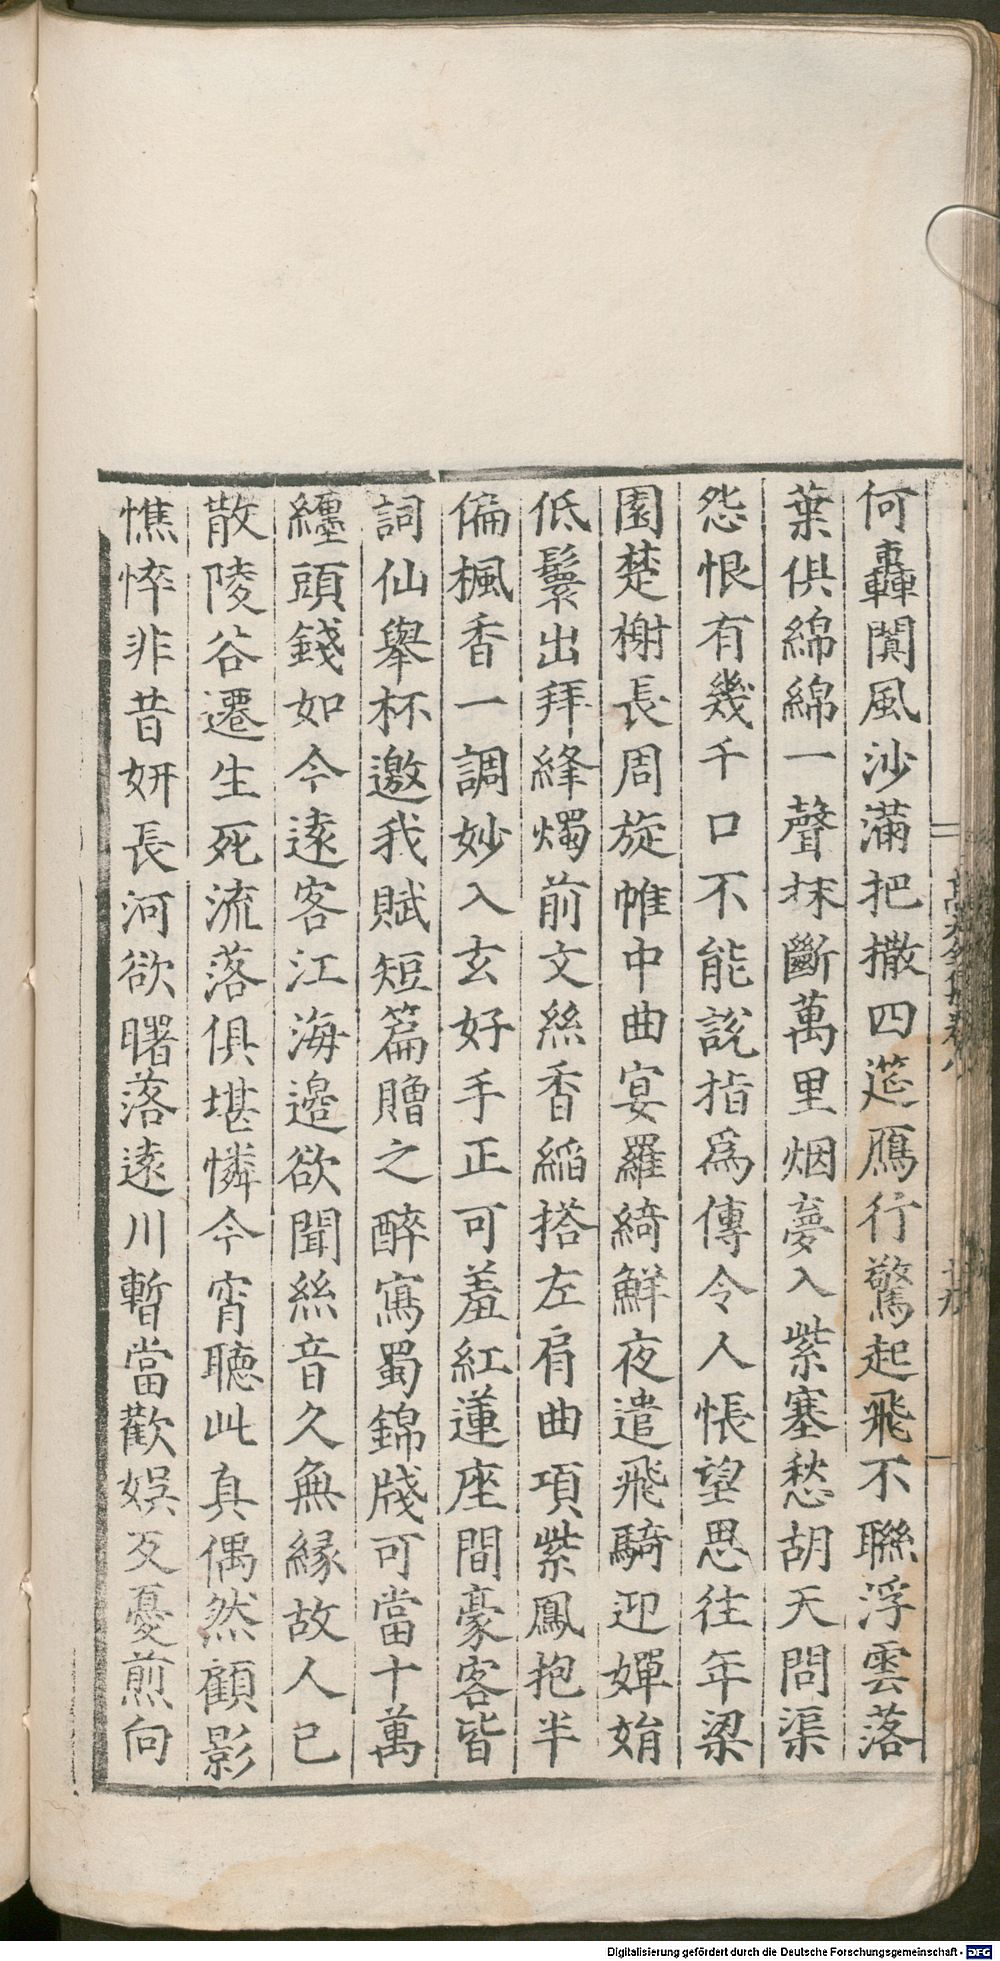 何轟闐風沙滿把撒四筵鴈行驚起飛不聯浮雲落
葉俱綿綿一聲抹斷萬里烟夢入紫塞愁胡天問渠
怨恨有幾千口不能説指爲傳令人悵望思往年梁
園楚榭長周旋帷中曲宴羅綺鮮夜遣飛騎迎嬋娟
低鬟出拜絳燭前文絲香縚搭左肩曲項紫鳳抱半
偏楓香一調妙入玄好手正可羞紅蓮座間豪客皆
詞仙舉杯邀我賦短篇贈之醉寫蜀錦牋可當十萬
纏頭錢如今遠客江海邉欲聞絲音久無緣故人已
散陵谷遷生死流落俱堪憐今宵聽此真偶然顧影
憔悴非昔妍長河欲曙落遠川暫當歡娱反憂煎向
Digitalisierung gefördert durch die Deutsche Forschungsgemeinschaft - DFG